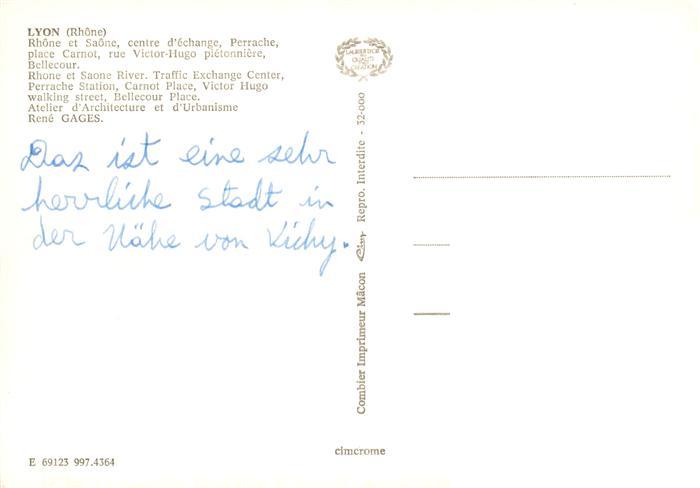 LYON (Rhône)
Rhône et Saône, centre d'échange, Perrache,
place Carnot, rue Victor-Hugo piétonnière,
Bellecour.
Rhone et Saone River. Traffic Exchange Center,
Perrache Station, Carnot Place, Victor Hugo
walking street, Bellecour Place.
Atelier d'Architecture et d'Urbanisme
René GAGES.
Das ist eine sehr
herrliche Stadt in
der Nähe von Vichy.
E 69123 997.4364
Combier Imprimeur Mâcon Cim Repro. Interdite - 32-000
cimcrome